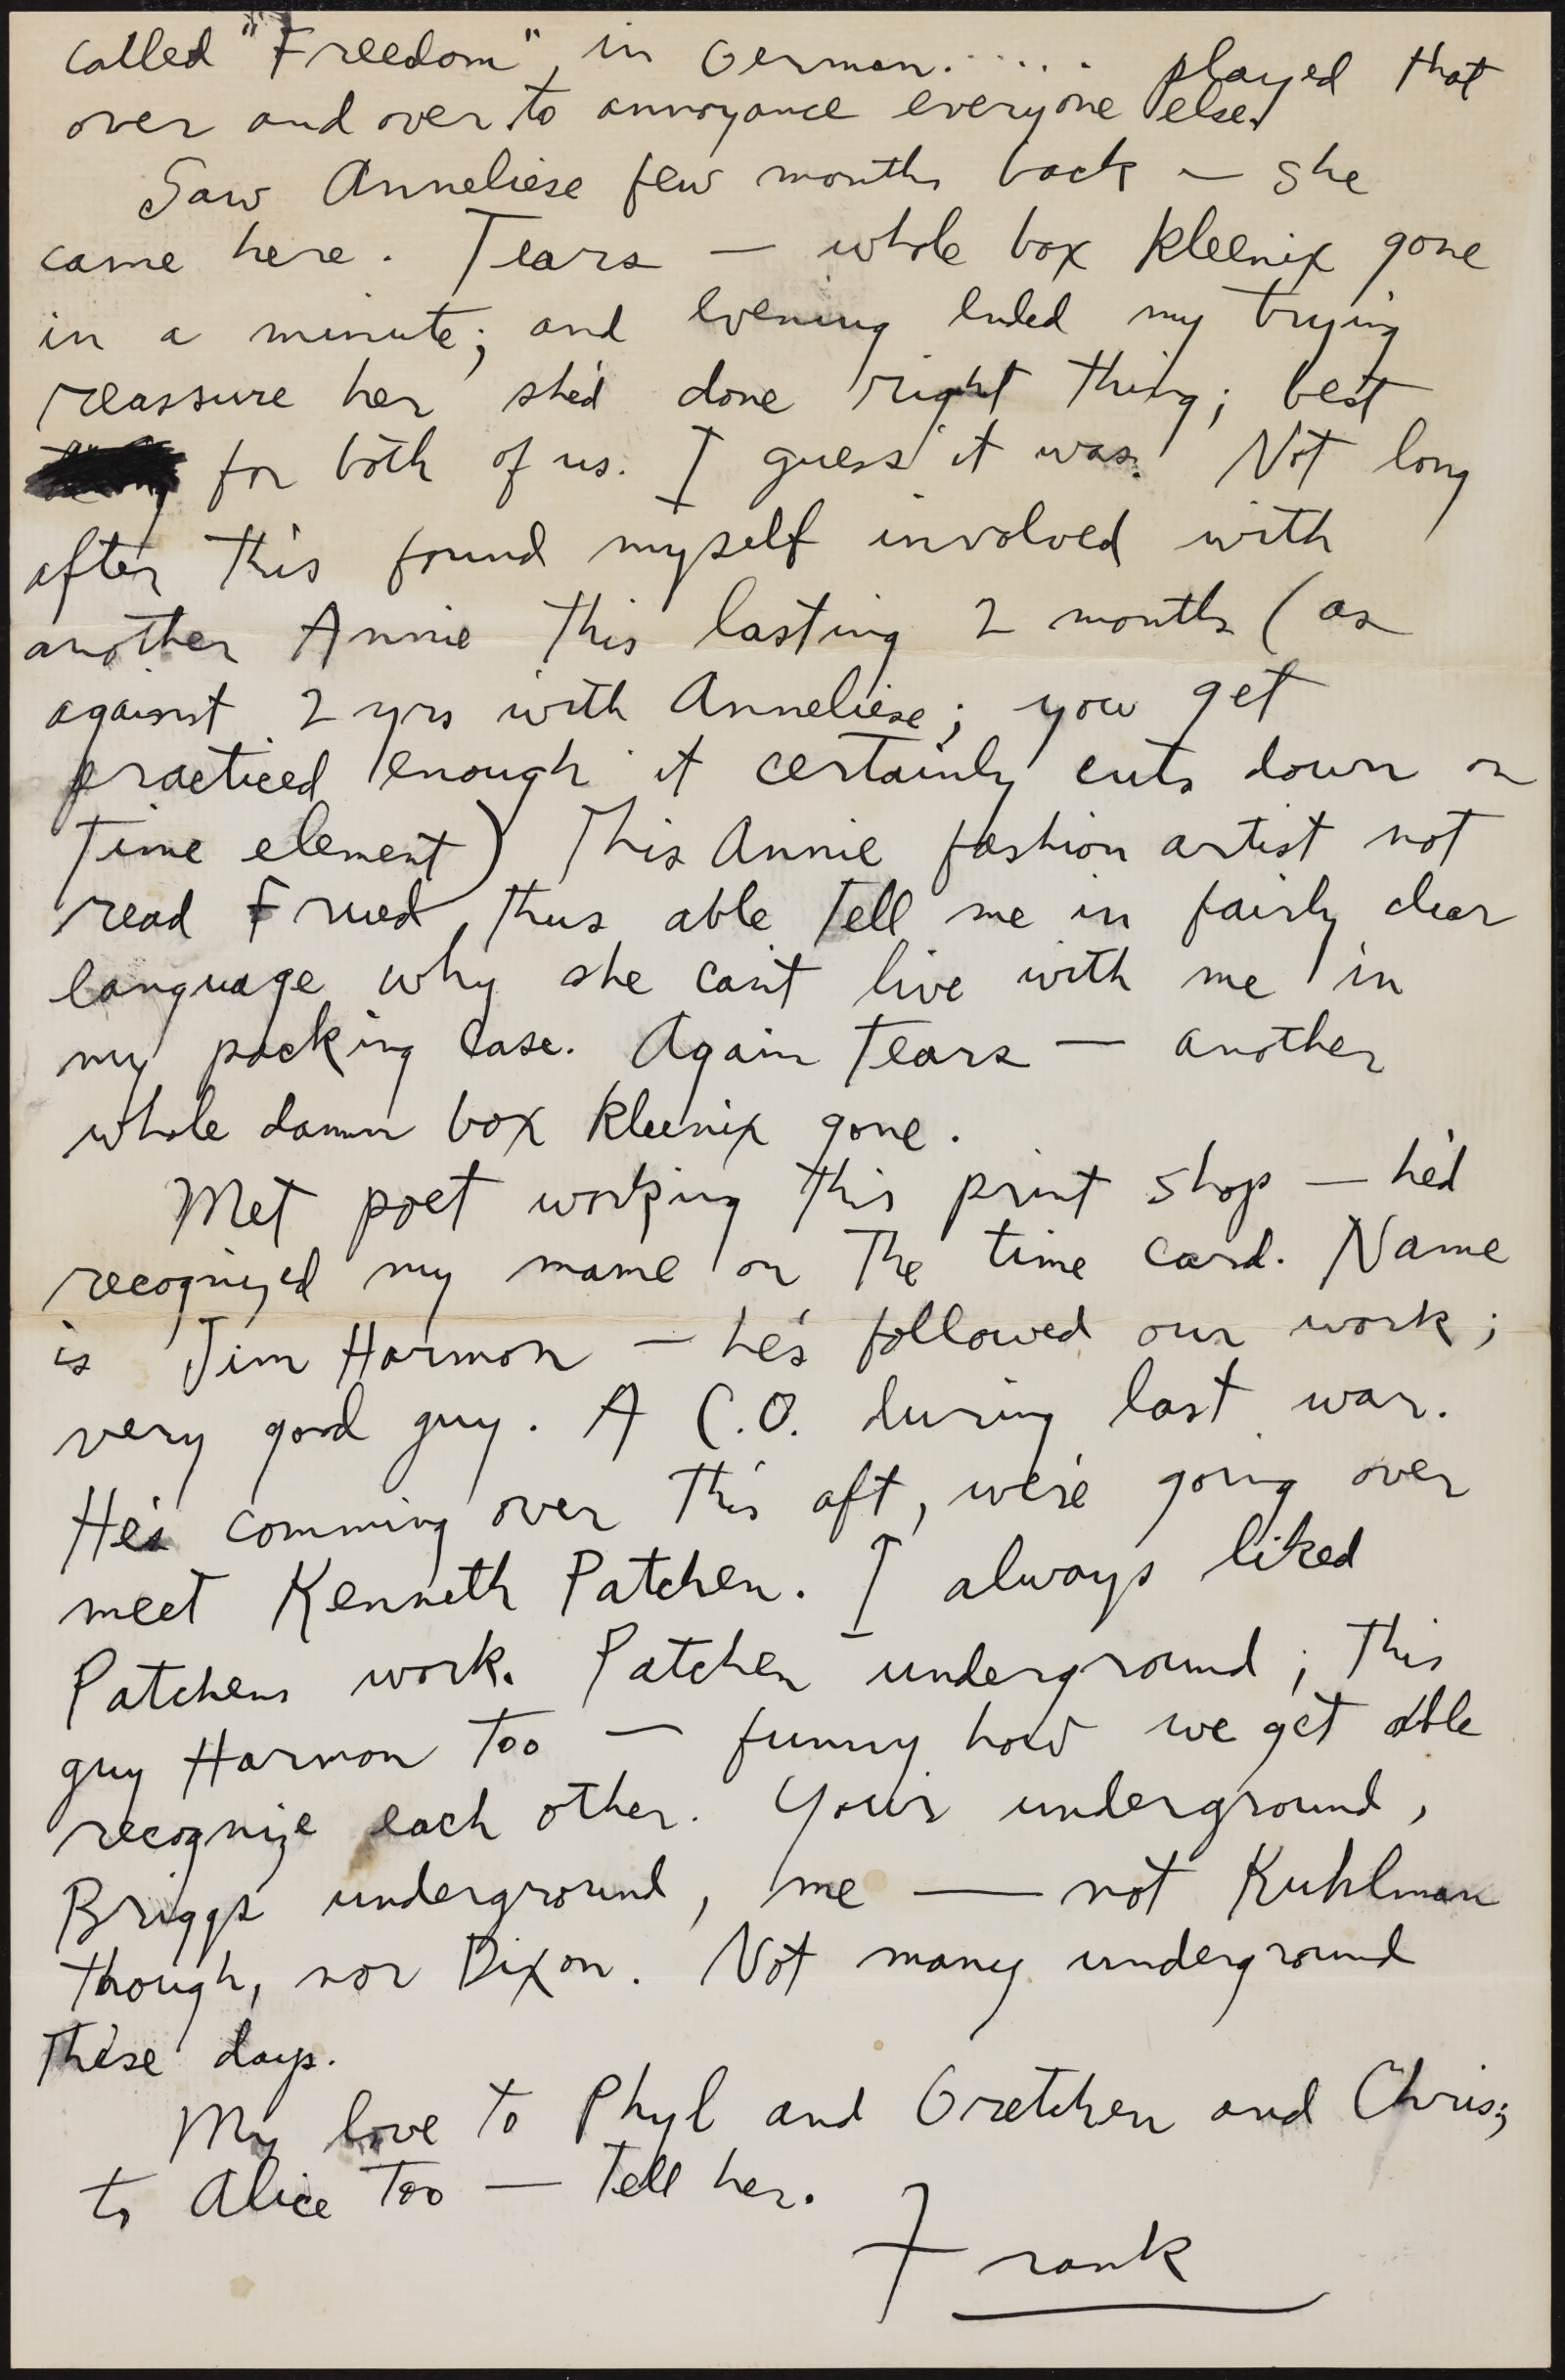 called "Freedom", in German..... played that
over and over to annoyance everyone else.
Saw Anneliese few months back – she
came here. Tears – whole box Kleenix gone
in a minute; and evening ended my trying
reassure her she'd done right thing; best
for both of us. I guess it was. Not long
after this found myself involved with
another Annie this lasting 2 months (as
against 2 yrs with Anneliese; you get
practiced enough it certainly cuts down on
time element) This Annie fashion artist not
read Frued, thus able tell me in fairly clear
language why she can't live with me in
my packing case. Again tears – another
whole damn box Kleenix gone.
Met poet working this print shop – he'd
recognized my name on the time card. Name
is Jim Harmon – he's followed our work;
very good guy. A C.O. during last war.
He's comming over this aft, we're going over
meet Kenneth Patchen. I always liked
Patchens work. Patchen underground; this
guy Harmon too – funny how we get able
recognize each other. Your underground,
Briggs underground, me — not Kuhlman
though, nor Dixon. Not many underground
these days.
My love to Phyl and Gretchen and Chris;
to Alice too – tell her.
Frank